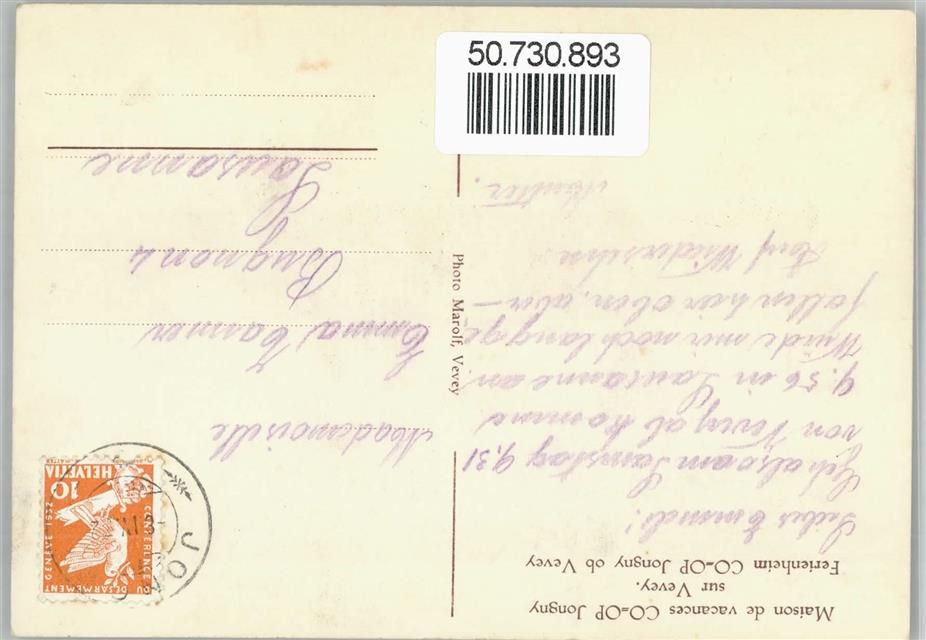 50.730.893
Maison de vacances CO=OP Jongny
sur Vevey.
Ferienheim CO=OP Jongny ob Vevey
Liebes Emmdi!
Geh also am Samstag 9.31
von Vevey ab komme
9.56 in Lausanne an.
Würde mir noch lang ge-
fallen hier oben, aber —
Auf Wiedersehn
Photo Marolf, Vevey
Mademoiselle
Emma Tanner
Bugnon 4
Lausanne
HELVETIA
10
GENÈVE · 1932
CONFERENCE
DU
DESARMEMENT
JO